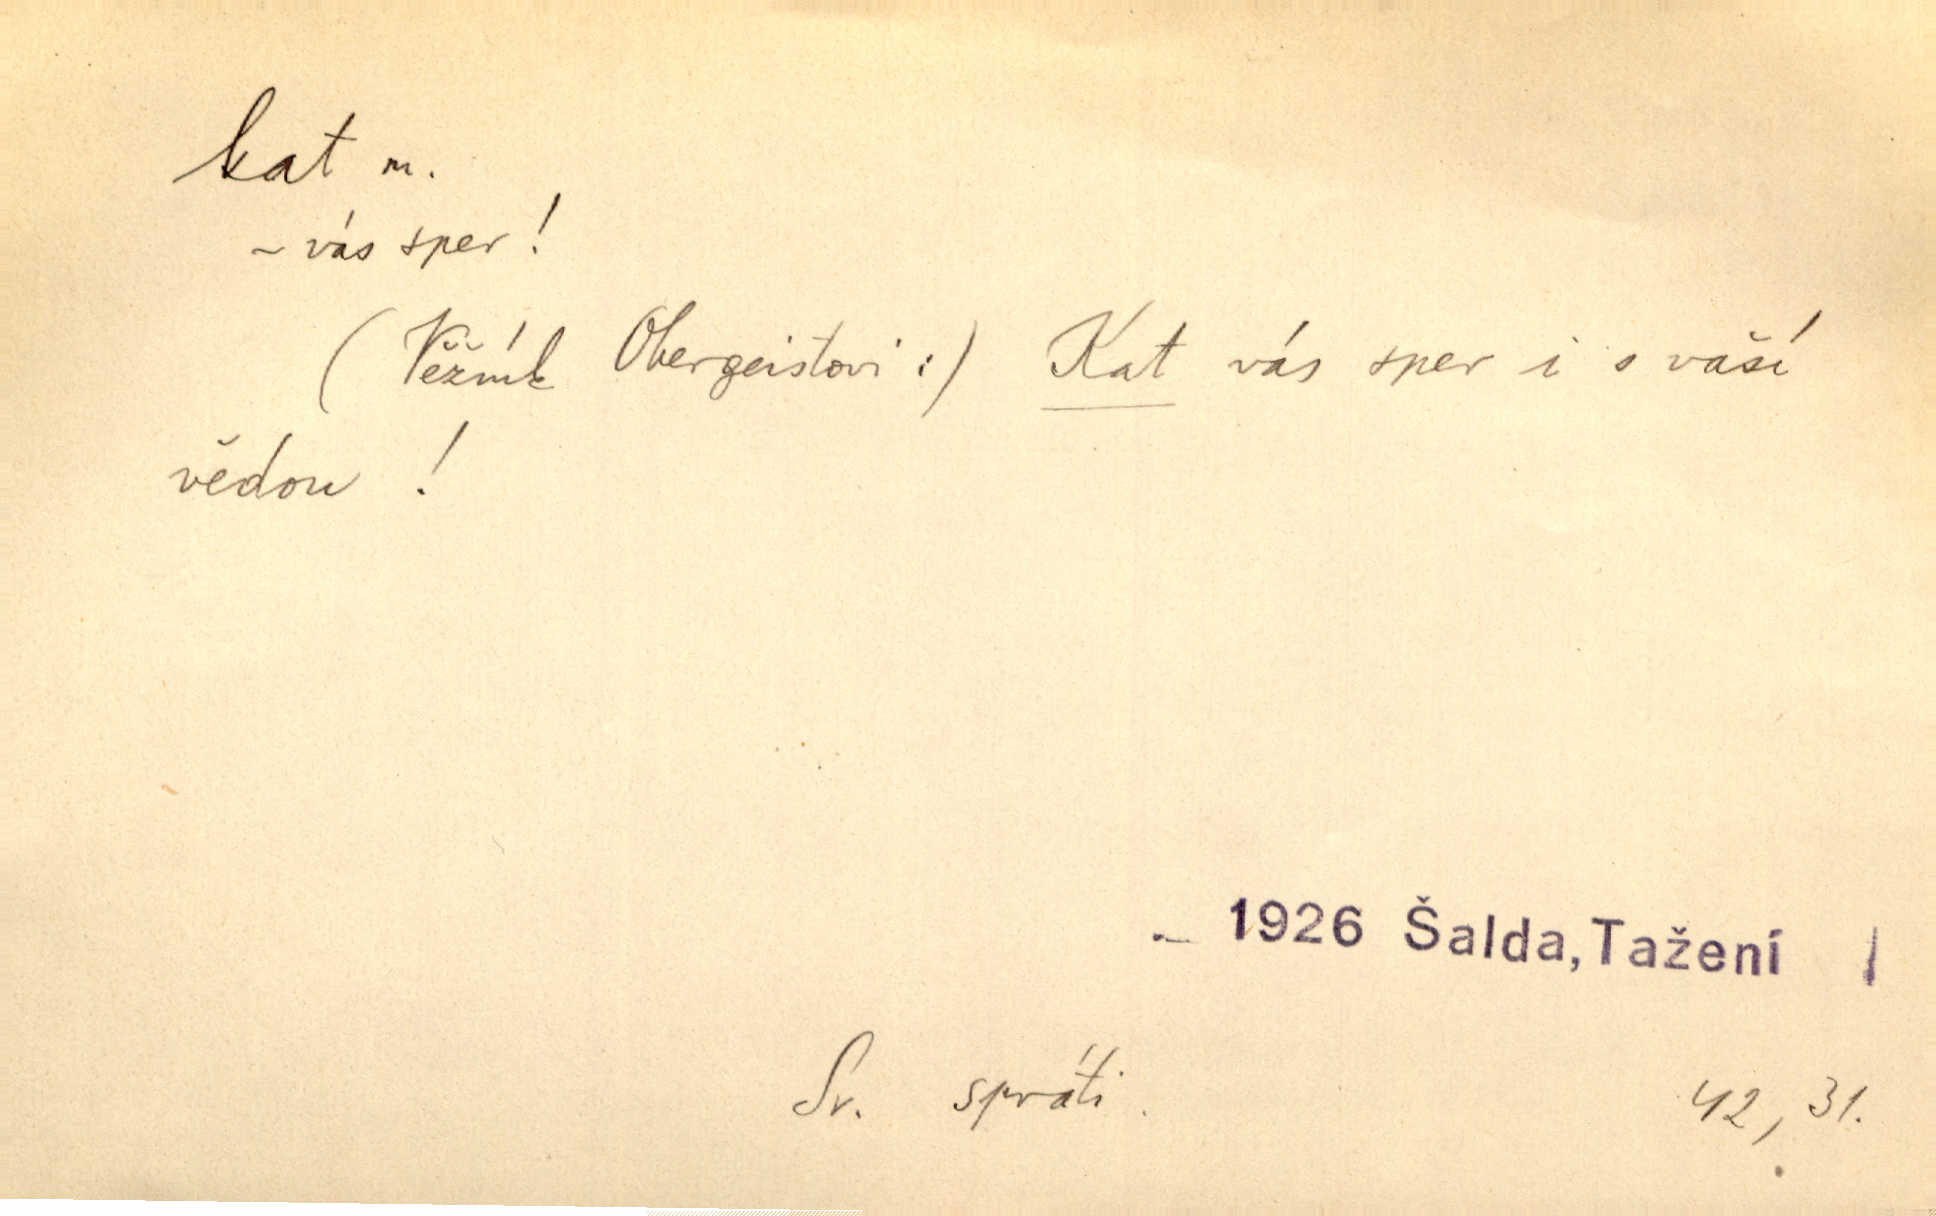 kat m.
~ vás sper!
(Věžník Obergeistovi:) Kat vás sper i s vaší
vědou!
– 1926 Šalda, Tažení
Sr. spráti.
42, 31.